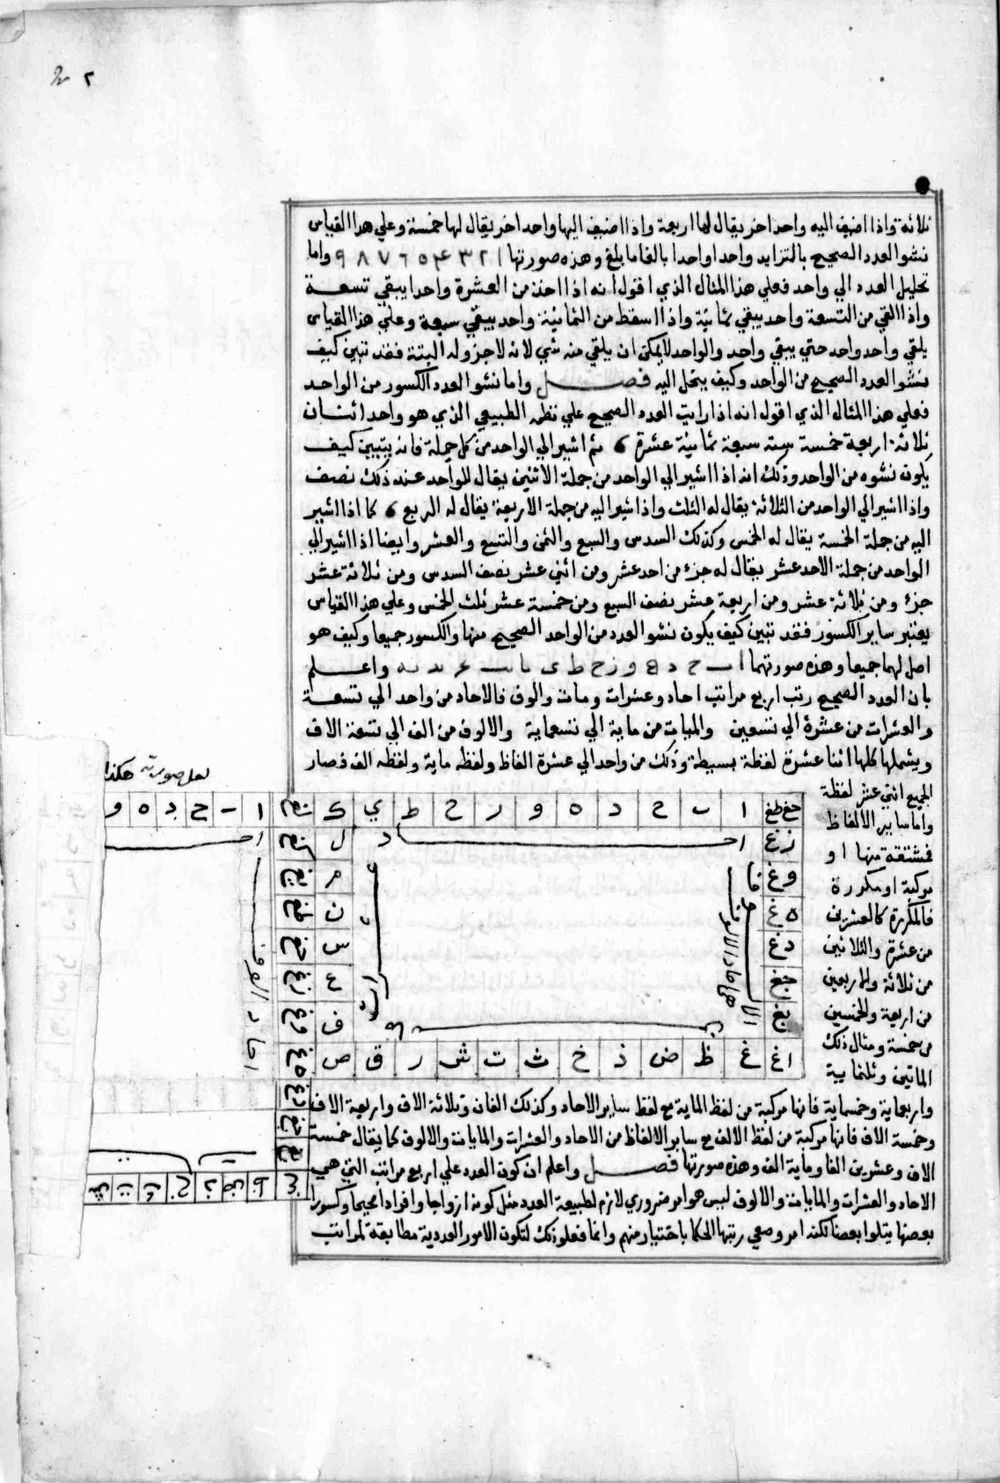 ٢
ثلاثة واذا اضيف اليه واحد اخر يقال لها اربعة واذا اضيف اليها واحد اخر يقال لها خمسة وعلي هذا القياس
نشو العدد الصحيح بالتزايد واحدا واحدا بالغا ما بلغ وهذه صورتها ١ ٢ ٣ ۴ ٥ ٦ ٧ ٨ ٩ واما
تحليل العدد الي واحد فعلي هذا المثال الذي اقول انه اذا اخذ من العشرة واحدا يبقي تسعة
واذا القي من التسعة واحد يبقي ثمانية واذا اسقط من الثمانية واحد يبقي سبعة وعلي هذا القياس
يلقي واحد واحد حتي يبقي واحد والواحد لا يمكن ان يلقي منه شي لانه لا جزو له البتة فقد تبين كيف
نشو العدد الصحيح من الواحد وكيف ينحل اليه فصل واما نشو العدد الكسور من الواحد
فعلي هذا المثال الذي اقول انه اذا رايت العدد الصحيح علي نظمه الطبيعي الذي هو واحد اثنان
ثلاثة اربعة خمسة ستة سبعة ثمانية عشرة ثم اشير الي الواحد من كل جملة فانه يتبين كيف
يكون نشوه من الواحد وذلك انه اذا اشير الي الواحد من جملة الاثنين يقال للواحد عند ذلك نصف
واذا اشير الي الواحد من الثلاثة يقال له الثلث واذا شير اليه من جملة الاربعة يقال له الربع كما اذا اشير
اليه من جملة الخمسة يقال له الخمس وكذلك السدس والسبع والثمن والتسع والعشر وايضا اذا اشير الي
الواحد من جملة الاحد عشر يقال له جزء من احد عشر ومن اثني عشر نصف السدس ومن ثلاثة عشر
جزء ومن ثلاثة عشر ومن اربعة عشر نصف السبع ومن خمسة عشر ثلث الخمس وعلي هذا القياس
يعتبر ساير الكسور فقد تبين كيف يكون نشو العدد من الواحد الصحيح منها والكسور جميعا وكيف هو
اصل لهما جميعا وهذه صورتهما ا ب ج د ه و ز ح ط ي واعلم
بان العدد الصحيح رتب اربع مراتب احاد وعشرات ومات والوف فالاحاد من واحد الي تسعة
والعشرات من عشرة الي تسعين والميات من ماية الي تسعماية والالوف من الف الي تسعة الاف
ويشملها كلها اثنا عشرة لفظة بسيطة وذلك من واحد الي عشرة الفاظ ولفظه ماية ولفظه الف فصار
لعل صورته هكذا
الجميع اثني عشر لفظة
واما ساير الالفاظ
فمشتقة منها او
مركبة او مكررة
فالمكررة كالعشرين
من عشرة والثلاثين
من ثلاثة والاربعين
من اربعة والخمسين
من خمسة ومثال ذلك
الماتين وثلثماية
ا ب ج د ه و ز ح ط ي ك
ا ب ج د ه و
زغ ل
وغ م
هغ ن
دغ س
جغ ع
بغ ف
اغ غ ظ ض ذ خ ث ت ش ر ق ص
واربعماية وخمسماية فانها مركبة من لفظ الماية مع لفظ ساير الاحاد وكذلك الفان وثلاثة الاف واربعة الاف
وخمسة الاف فانها مركبة من لفظ الالف مع ساير الالفاظ من الاحاد والعشرات والمايات والالوف كما يقال خمسة
الاف وعشرين الفا وماية الف وهذه صورتها فصل واعلم ان كون العدد علي اربع مراتب التي هي
الاحاد والعشرات والمايات والالوف ليس هو امر ضروري لازم لطبيعة العدد مثل كونه ازواجا وافرادا صحيحا وكسورا
بعضها يتلوا بعضا لكنه امر وضعي رتبها الحكما باختيار منهم وانما فعلو ذلك لتكون الامور العددية مطابقة لمراتب